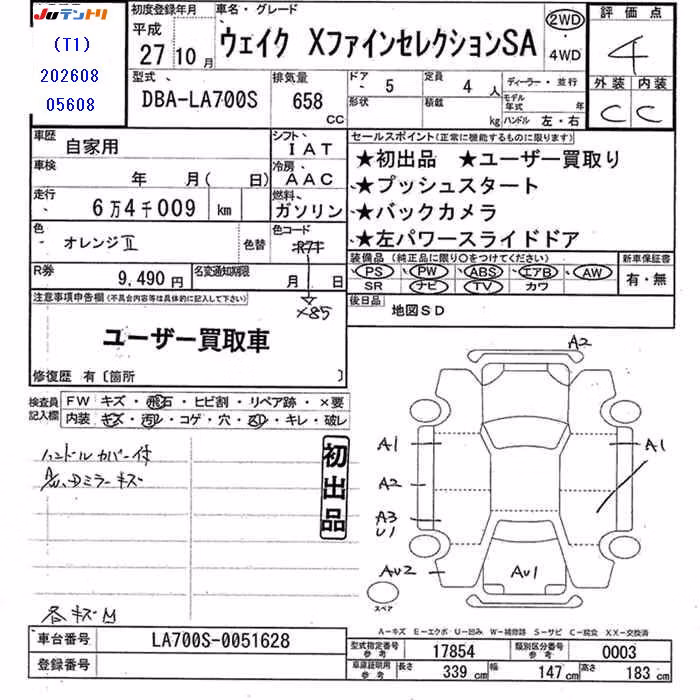 JUテントリ
(T1)
202608
05608
初度登録年月
平成
27年10月
車名・グレード
ウェイク XファインセレクションSA
2WD
・
4WD
評価点
4
型式
DBA-LA700S
排気量
658
CC
ドア
5
定員
4人
形状
積載
kg
ディーラー・並行
モデル年式
年
ハンドル 左・右
外装 内装
C C
車歴
自家用
シフト
IAT
車検
年 月( 日)
冷房
AAC
走行
6万4千009 km
燃料
ガソリン
色
オレンジⅡ
色替
色コード
R7キ
X85
R券
9,490円
名変通知期限
月 日
セールスポイント(正常に機能するものに限ります)
★初出品 ★ユーザー買取り
★プッシュスタート
★バックカメラ
★左パワースライドドア
装備品(純正品に限り○をつけてください)
PS PW ABS エアB AW
SR ナビ TV カワ
新車保証書
有・無
後日品
地図SD
注意事項申告欄(不具合内容等は具体的に記入して下さい)
ユーザー買取車
修復歴 有〔箇所 〕
検査員記入欄
FW キズ・飛石・ヒビ割・リペア跡・×要
内装 キズ・汚れ・コゲ・穴・ズレ・キレ・破レ
ハンドルカバー付
ミラーキズ
初出品
各キズM
A2
A1
A1
A2
A3
U1
AU2
AU1
スペア
A-キズ E-エクボ U-凹み W-補修跡 S-サビ C-腐食 XX-交換済
車台番号
LA700S-0051628
登録番号
型式指定番号
参考
17854
類別区分番号
参考
0003
車庫証明用
参考
長さ
339cm
幅
147cm
高さ
183cm